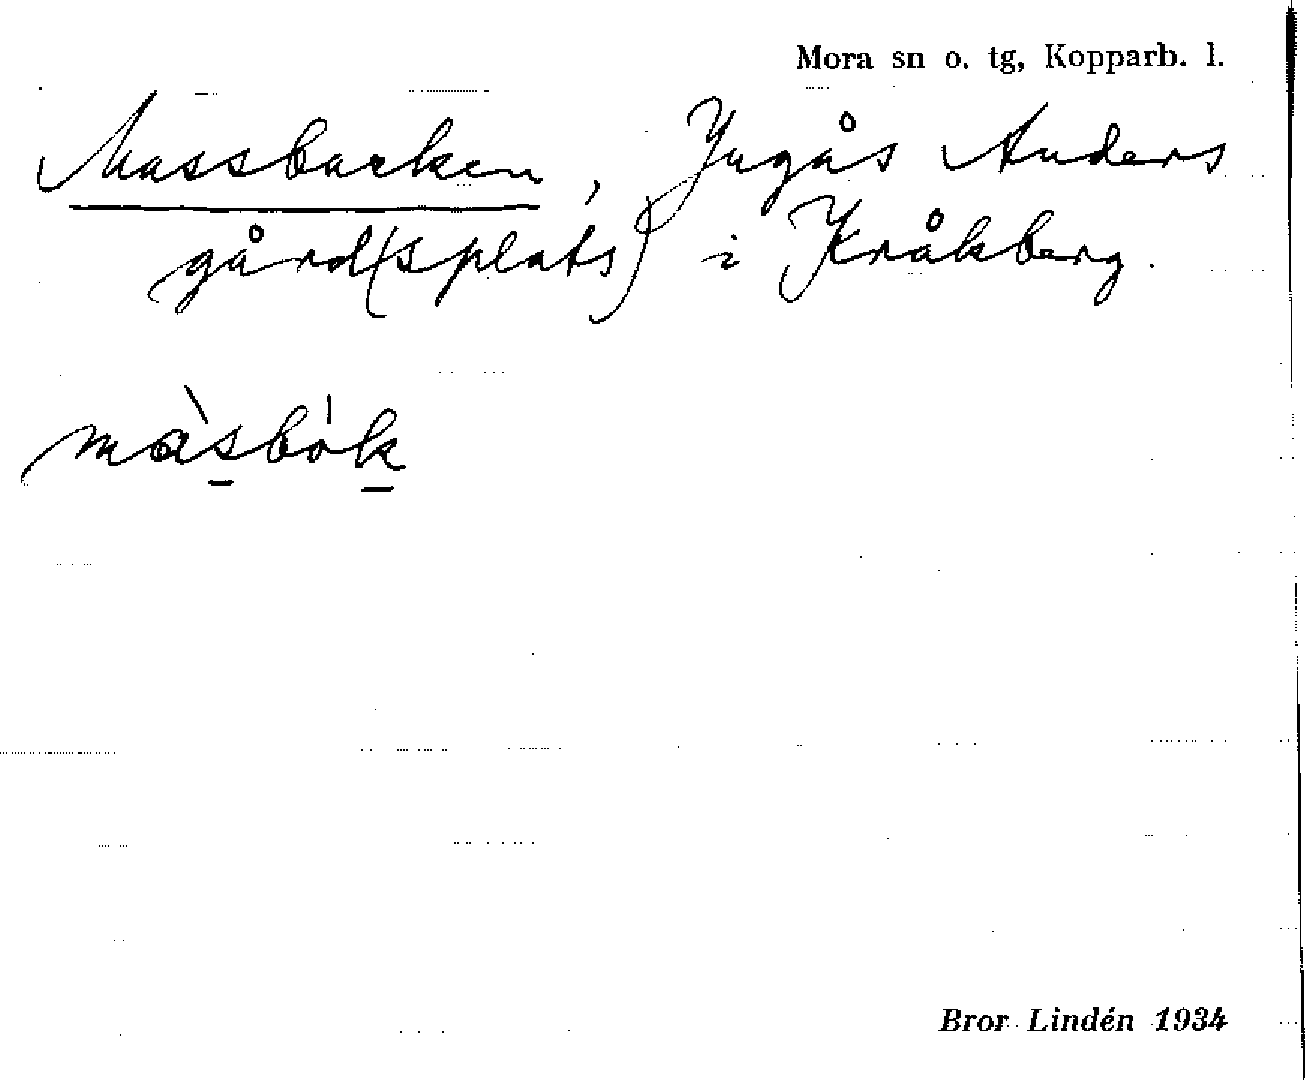 Mora sn o. tg, Kopparb. l.
Massbacken, Ingås Anders
gård(splats) i Kråkberg.
màsbòk
Bror Lindén 1934